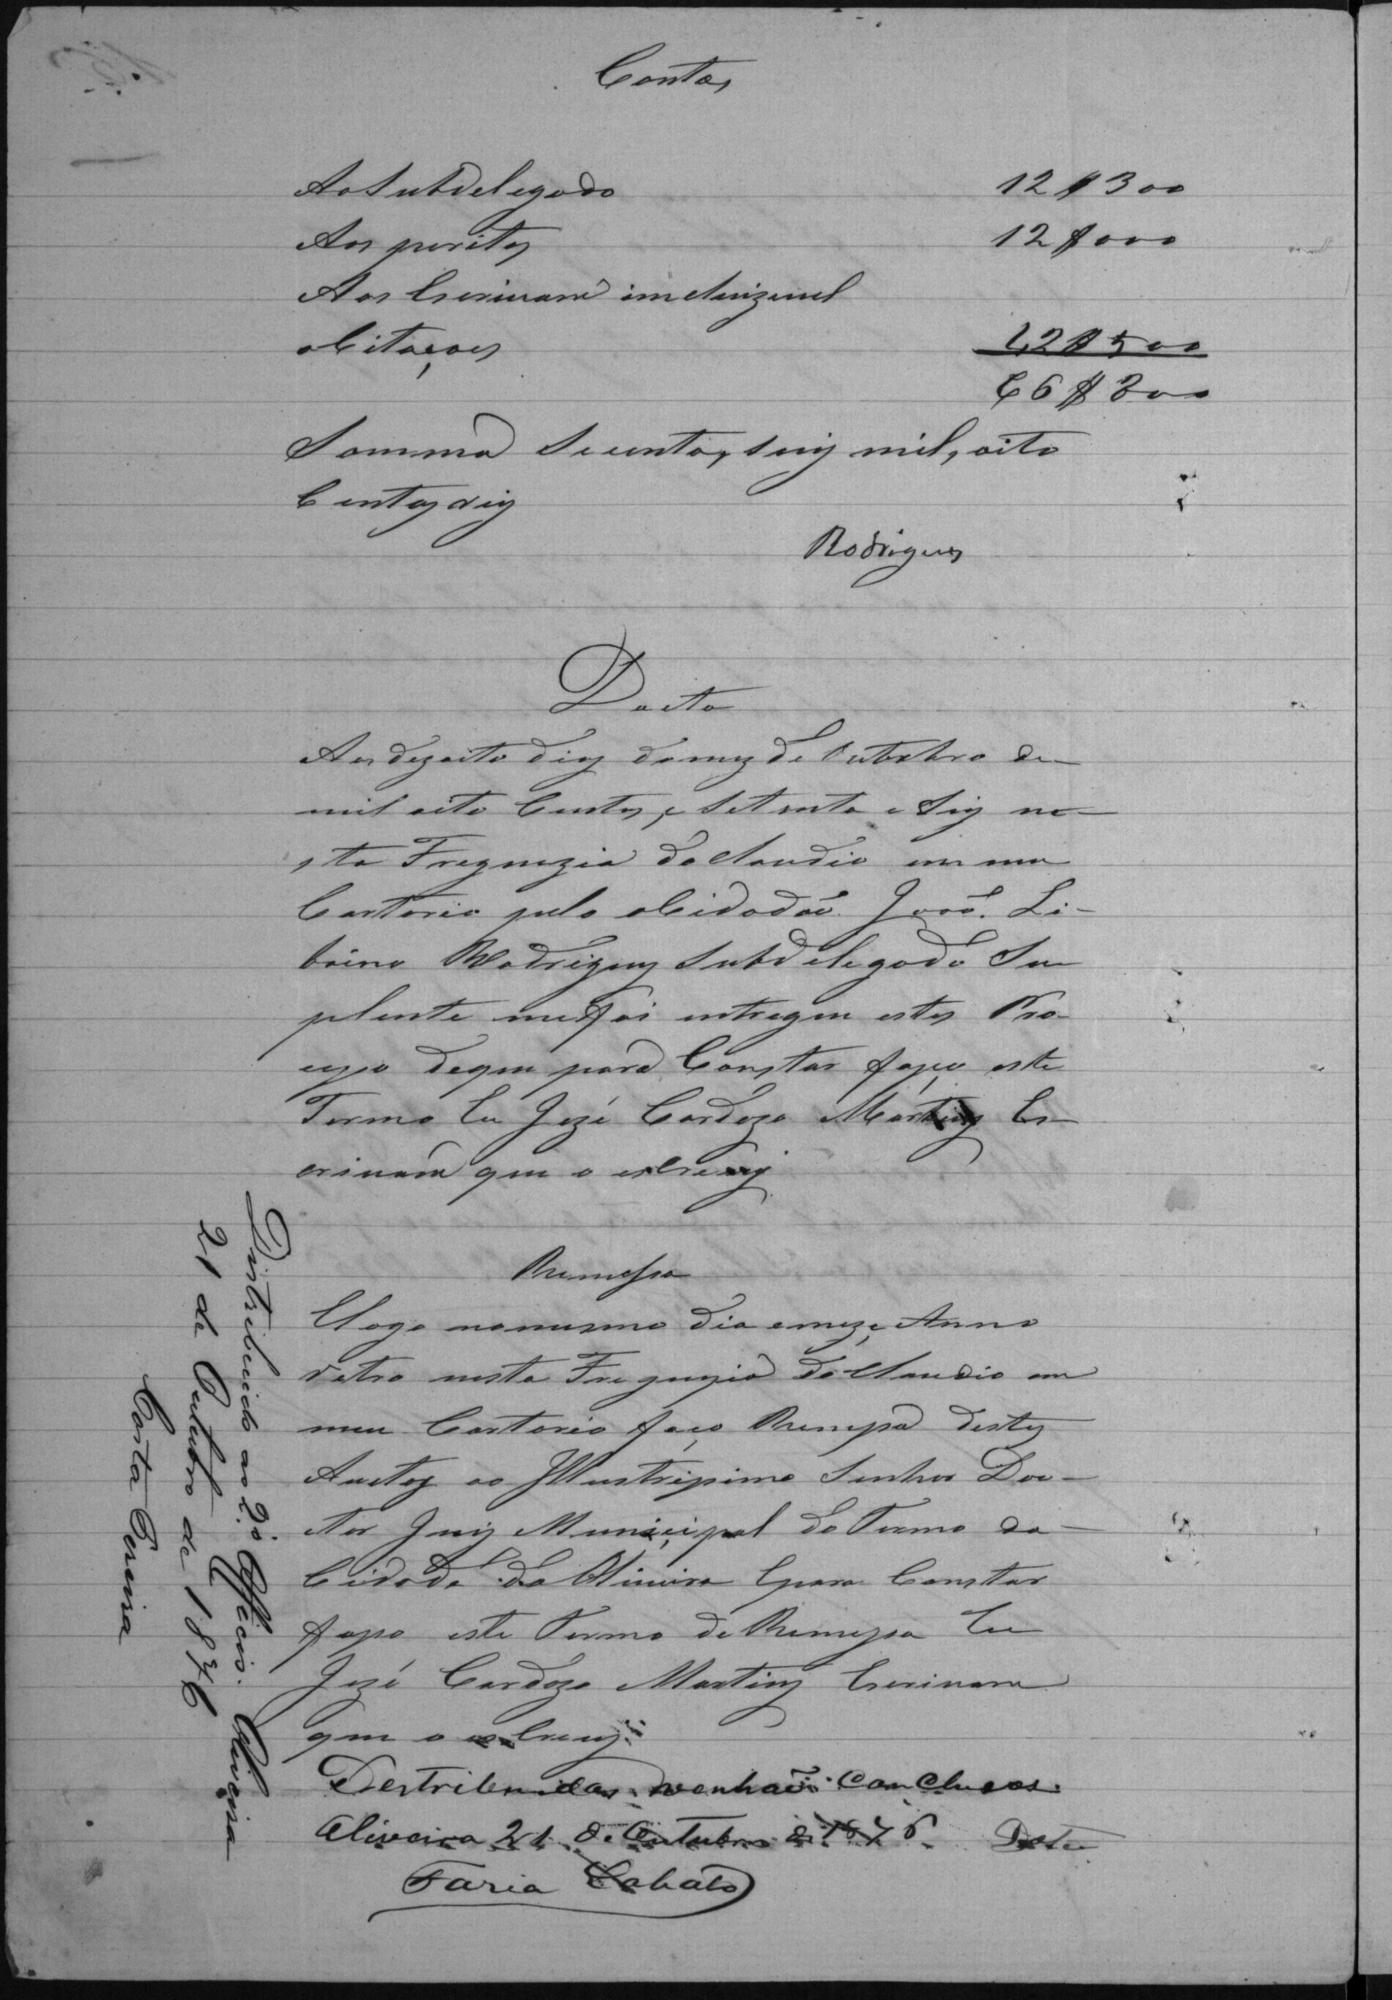 Contas
Ao Subdelegado 12$300
Aos peritos 12$000
Aos Escrivam incluzivel
a Citaçoes 42$500
66$800
Somma Secenta, seis mil, oito
Centos reis
Rodrigues
Dacta
Aos dezoito dias do mez de Outubro de
mil oito Centos, e Setenta e Seis ne-
sta Freguezia do Claudio em meu
Cartorio pelo o Cidadão João Li-
baino Rodrigues Subdelegado Su
plente me foi entregue estes Pro-
cepo de que para Constar faço este
Termo Eu Jozé Cardozo Martins Es-
crivam que o escrevy
Remessa
E logo no mesmo dia e mez e Anno
retro nesta Freguezia do Claudio em
meu Cartorio faço Remessa destes
Auctos ao Illustrissimo Senhor Dou-
ctor Juiz Municipal do Termo da
Cidade da Oliveira E para Constar
faço este Termo de Remessa Eu
Jozé Cardozo Martins Escrivam
que o escrevy
Destribuidas venhão conclusos.
Oliveira 21 de Outubro de 1876. Data
Faria Lobato
Distribuido ao 2.º Officio. Oliveira
21 de Outubro de 1876
Costa Pereira